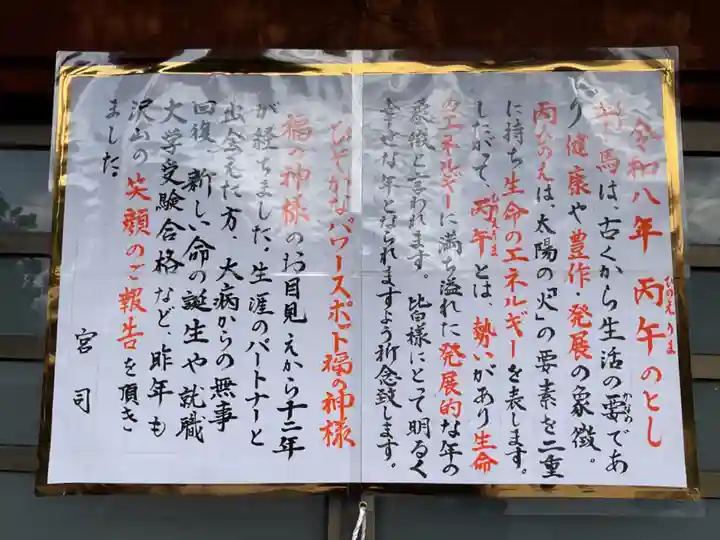 令和八年 丙午のとし
ひのえうま
午、馬は、古くから生活の要であ
かなめ
り健康や豊作・発展の象徴。
丙ひのえは、太陽の「火」の要素を二重
に持ち生命のエネルギーを表します。
したがって、丙午とは、勢いがあり生命
ひのえうま
のエネルギーに満ち溢れた発展的な年の
象徴と言われます。皆様にとって明るく
幸せな年となられますよう祈念致します。
ひそかなパワースポット福の神様
福の神様のお目見えから十二年
が経ちました。生涯のパートナーと
出会えた方、大病からの無事
回復、新しい命の誕生や就職
大学受験合格など、昨年も
沢山の笑顔のご報告を頂き
ました。
宮司